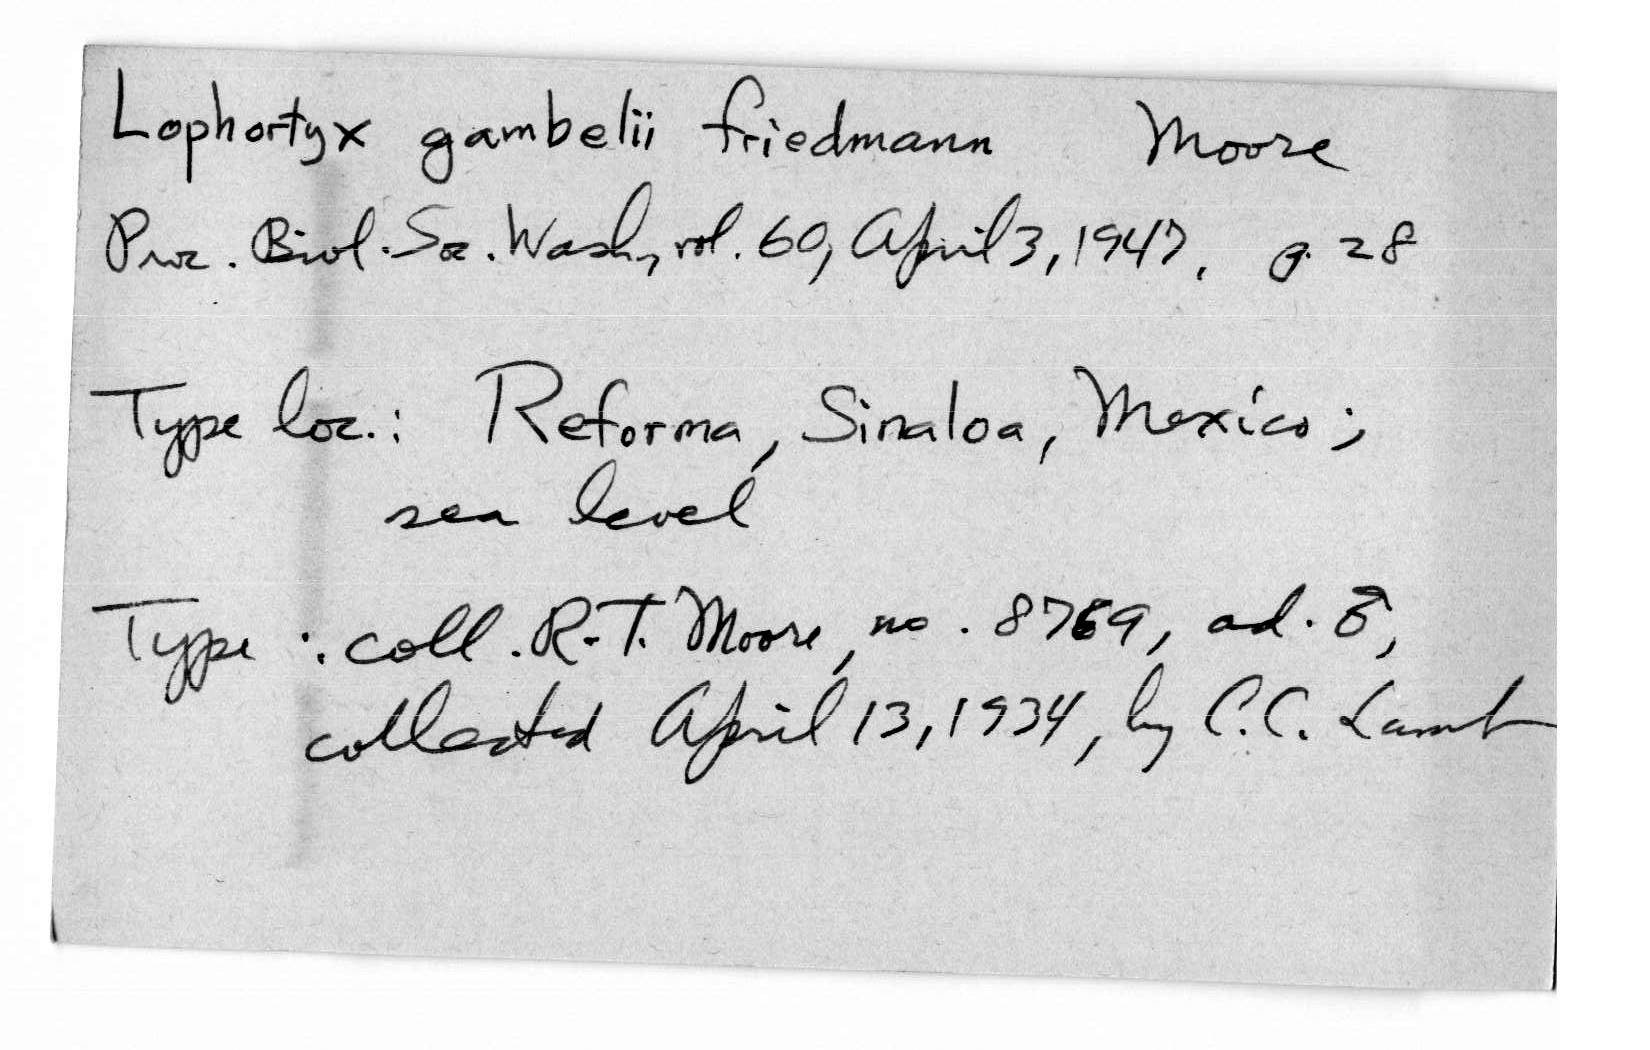 Lophortyx gambelii friedmann Moore
Proc. Biol. Soc. Wash., vol. 60, April 3, 1947, p. 28
Type loc.: Reforma, Sinaloa, Mexico;
sea level
Type: coll. R.T. Moore, no. 8769, ad. ♂,
collected April 13, 1934, by C.C. Lamb